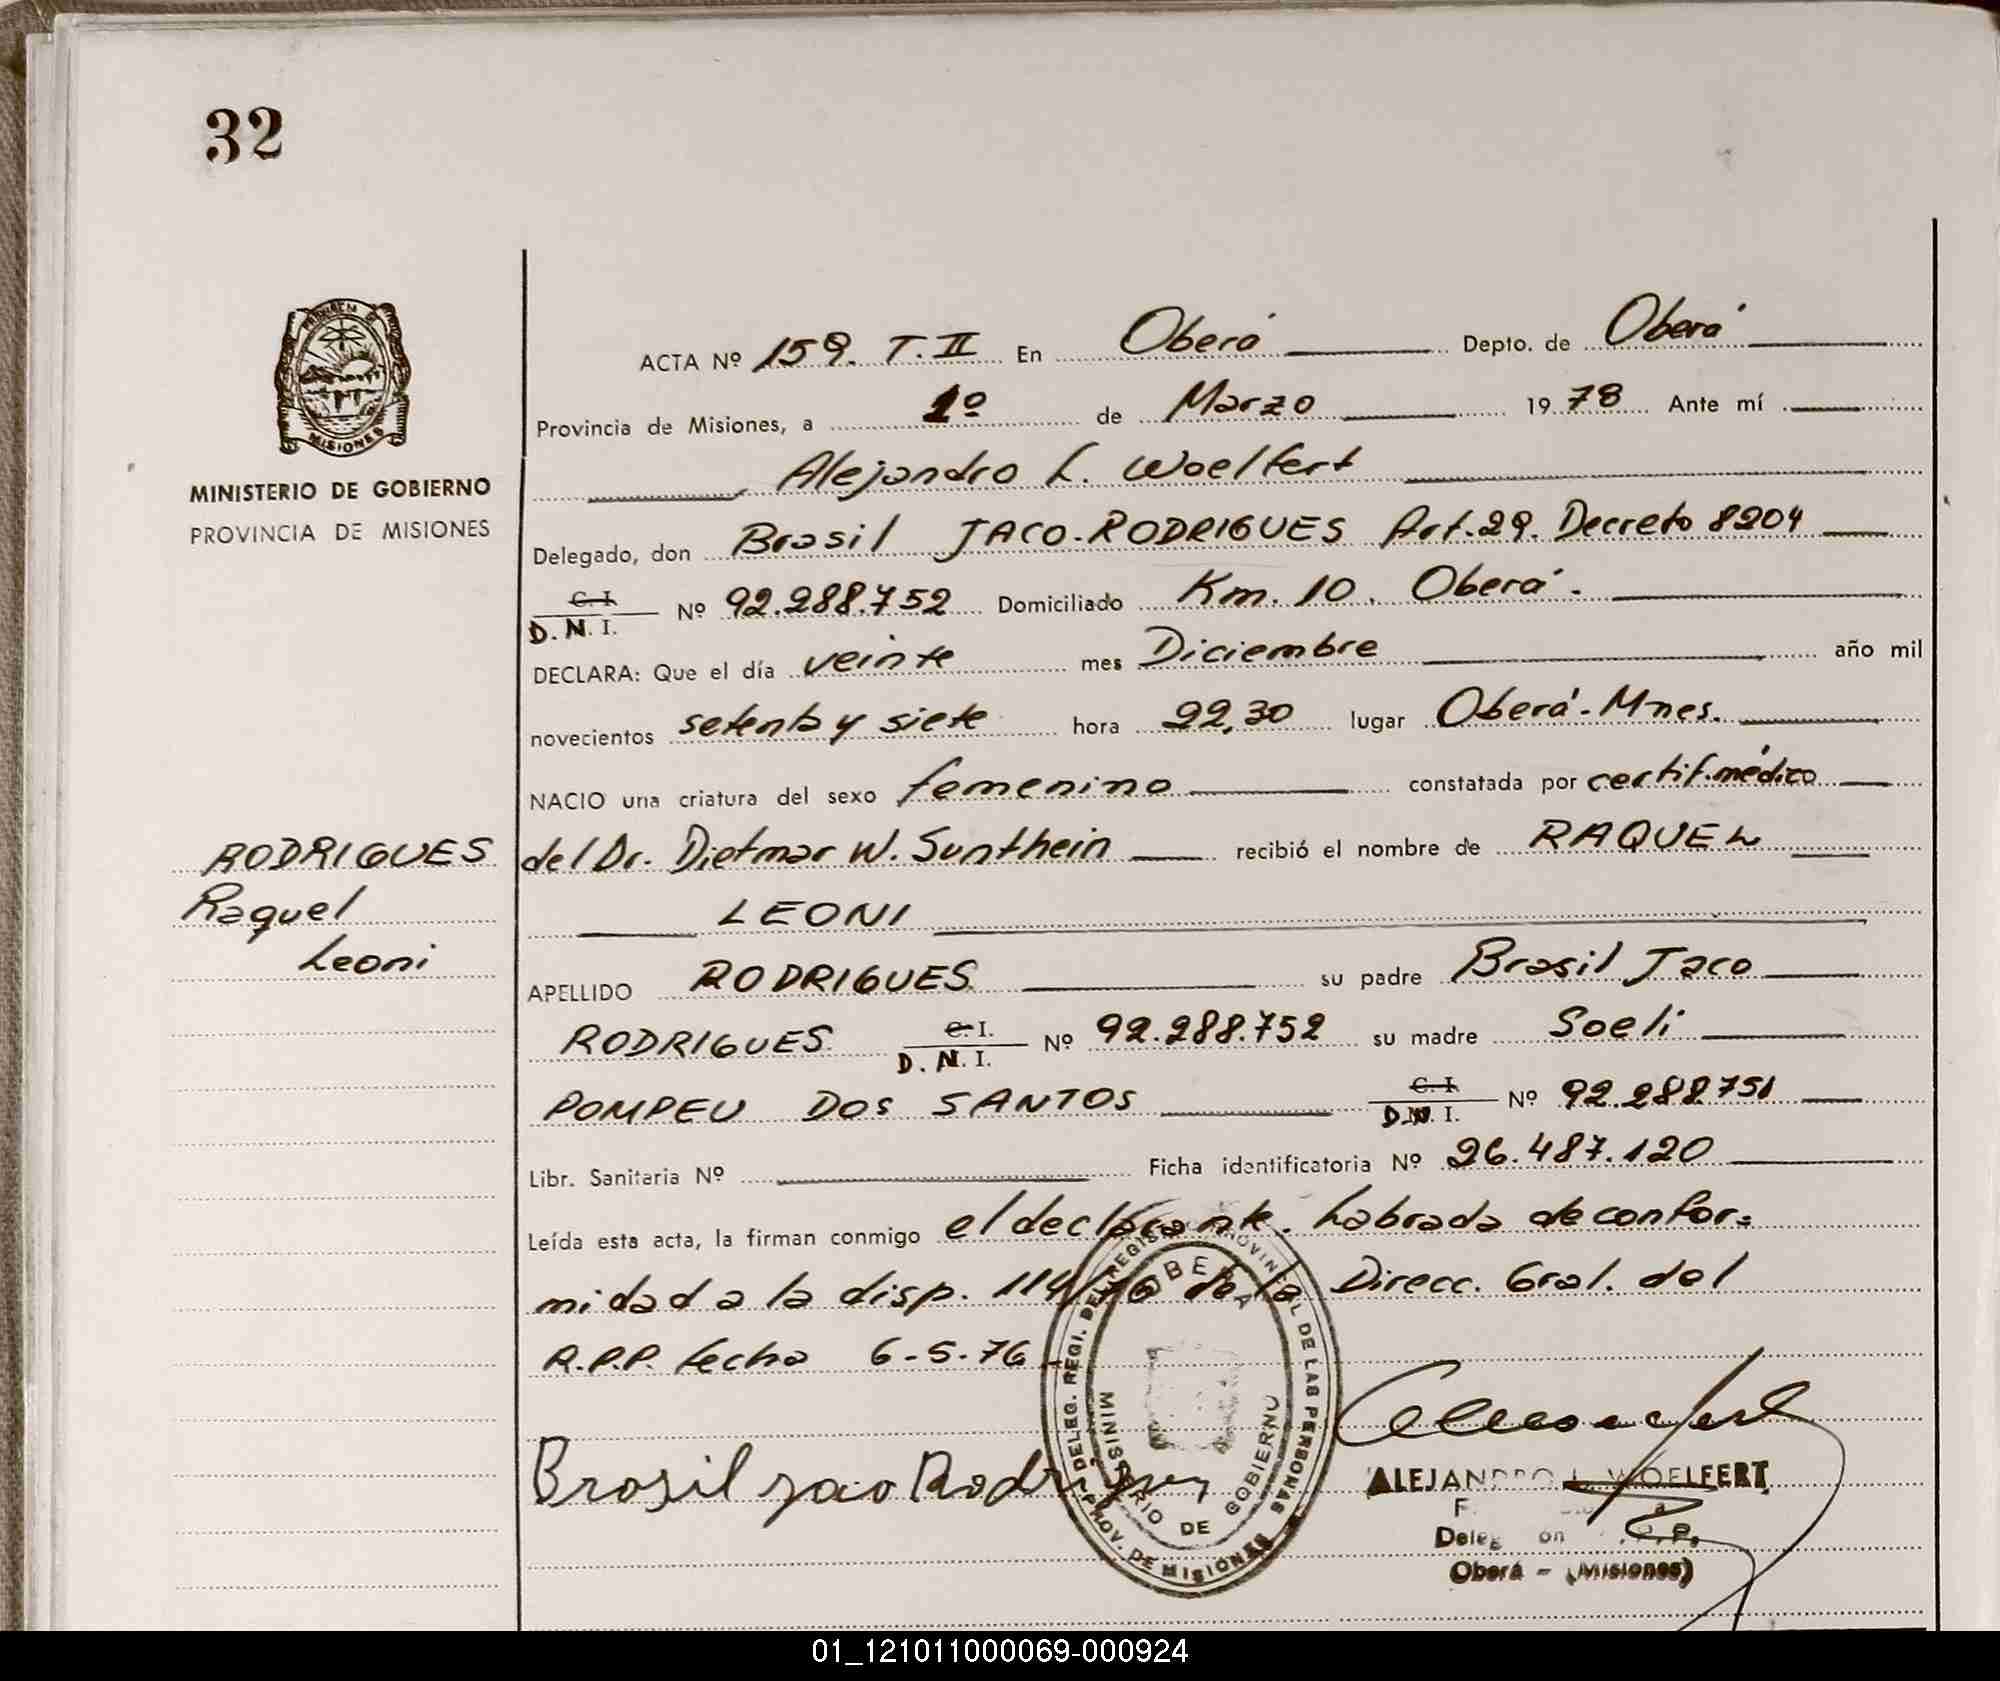 32
PROVINCIA DE
MISIONES
MINISTERIO DE GOBIERNO
PROVINCIA DE MISIONES
ACTA Nº 159. T. II En Oberá Depto. de Oberá
Provincia de Misiones, a 1º de Marzo 1978 Ante mí
Alejandro L. Woelfert
Delegado, don Brasil JACO-RODRIGUES Art. 29. Decreto 8204
C. I.
D. N. I. Nº 92.288.752 Domiciliado Km. 10. Oberá.
DECLARA: Que el día veinte mes Diciembre año mil
novecientos setenta y siete hora 22,30 lugar Oberá-Mnes.
NACIO una criatura del sexo femenino constatada por certif. médico
RODRIGUES del Dr. Dietmar W. Sunthein recibió el nombre de RAQUEL
Raquel LEONI
Leoni
APELLIDO RODRIGUES su padre Brasil Jaco
RODRIGUES C. I. D. N. I. Nº 92.288.752 su madre Soeli
POMPEU DOS SANTOS C. I. D. N. I. Nº 92.288.751
Libr. Sanitaria Nº Ficha identificatoria Nº 26.487.120
Leída esta acta, la firman conmigo el declarante. Labrada de confor=
midad a la disp. 114 de la Direcc. Gral. del
R.P.P. fecha 6-5-76
DELEG. REGI. DEL REGISTRO PROVINCIAL DE LAS PERSONAS
OBERA
MINISTERIO DE GOBIERNO
PROV. DE MISIONES
Brasil Jaco Rodrigues
ALEJANDRO L. WOELFERT
Oberá - (Misiones)
01_121011000069-000924